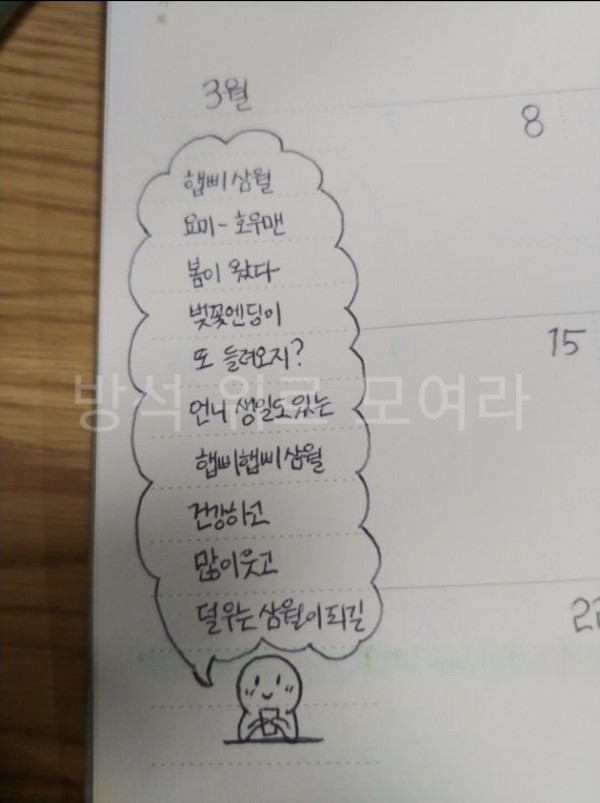 록
3월
8
햅삐 삼월
요미~호우맨
봄이 왔다
벚꽃엔딩이
또 들려오지?
15
방석 위로 모여라
언니 생일도 있는
햅삐햅삐 삼월
건강하고
많이 웃고
덜 우는 삼월이 되길
22